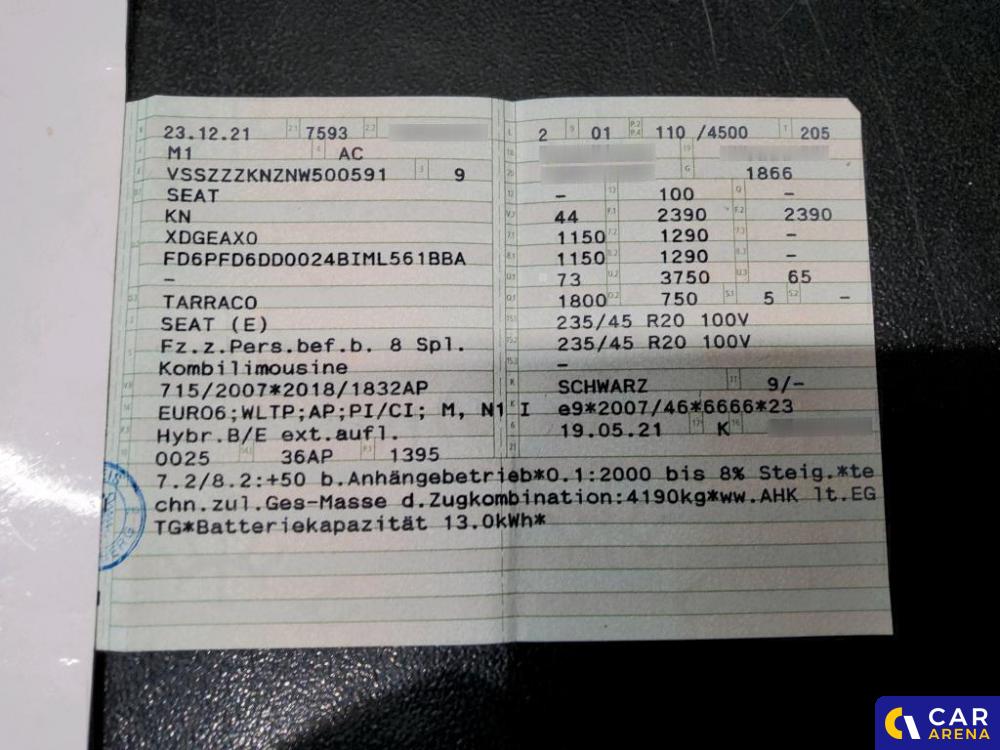 23.12.21 2.1 7593 2.2
M1 4 AC
VSSZZZKNZNW500591 3 9
SEAT
KN
XDGEAX0
FD6PFD6DD0024BIML561BBA
–
TARRACO
SEAT (E)
Fz.z.Pers.bef.b. 8 Spl.
Kombilimousine
715/2007*2018/1832AP
EURO6;WLTP;AP;PI/CI; M, N1 I
Hybr.B/E ext.aufl.
0025 14.1 36AP P.1 1395
L 2 9 01 P.2 P.4 110 /4500 T 205
18 19
20 G 1866
12 – 13 100 Q –
V.7 44 F.1 2390 F.2 2390
7.1 1150 7.2 1290 7.3 –
8.1 1150 8.2 1290 8.3 –
U.1 73 U.2 3750 U.3 65
O.1 1800 O.2 750 S.1 5 S.2 –
15.1 235/45 R20 100V
15.2 235/45 R20 100V
15.3 –
R SCHWARZ 11 9/–
K e9*2007/46*6666*23
6 19.05.21 17 K 16
21
7.2/8.2:+50 b.Anhängebetrieb*O.1:2000 bis 8% Steig.*te
chn.zul.Ges-Masse d.Zugkombination:4190kg*ww.AHK lt.EG
TG*Batteriekapazität 13.0kWh*
CAR
ARENA